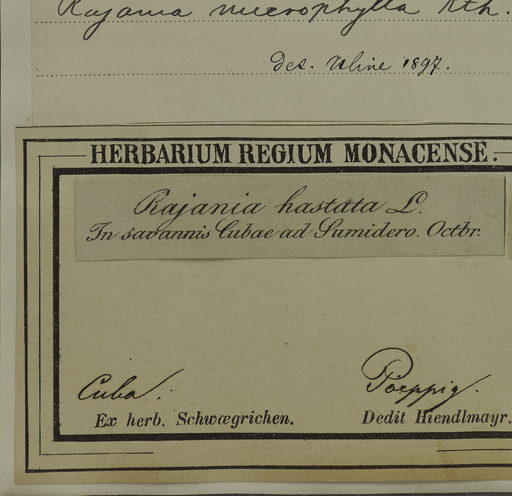 Rajania microphylla Kth.
det. Uline 1897.
HERBARIUM REGIUM MONACENSE.
Rajania hastata L.
In savannis Cubae ad Sumidero. Octbr.
Cuba. Poeppig.
Ex herb. Schwægrichen. Dedit Hiendlmayr.